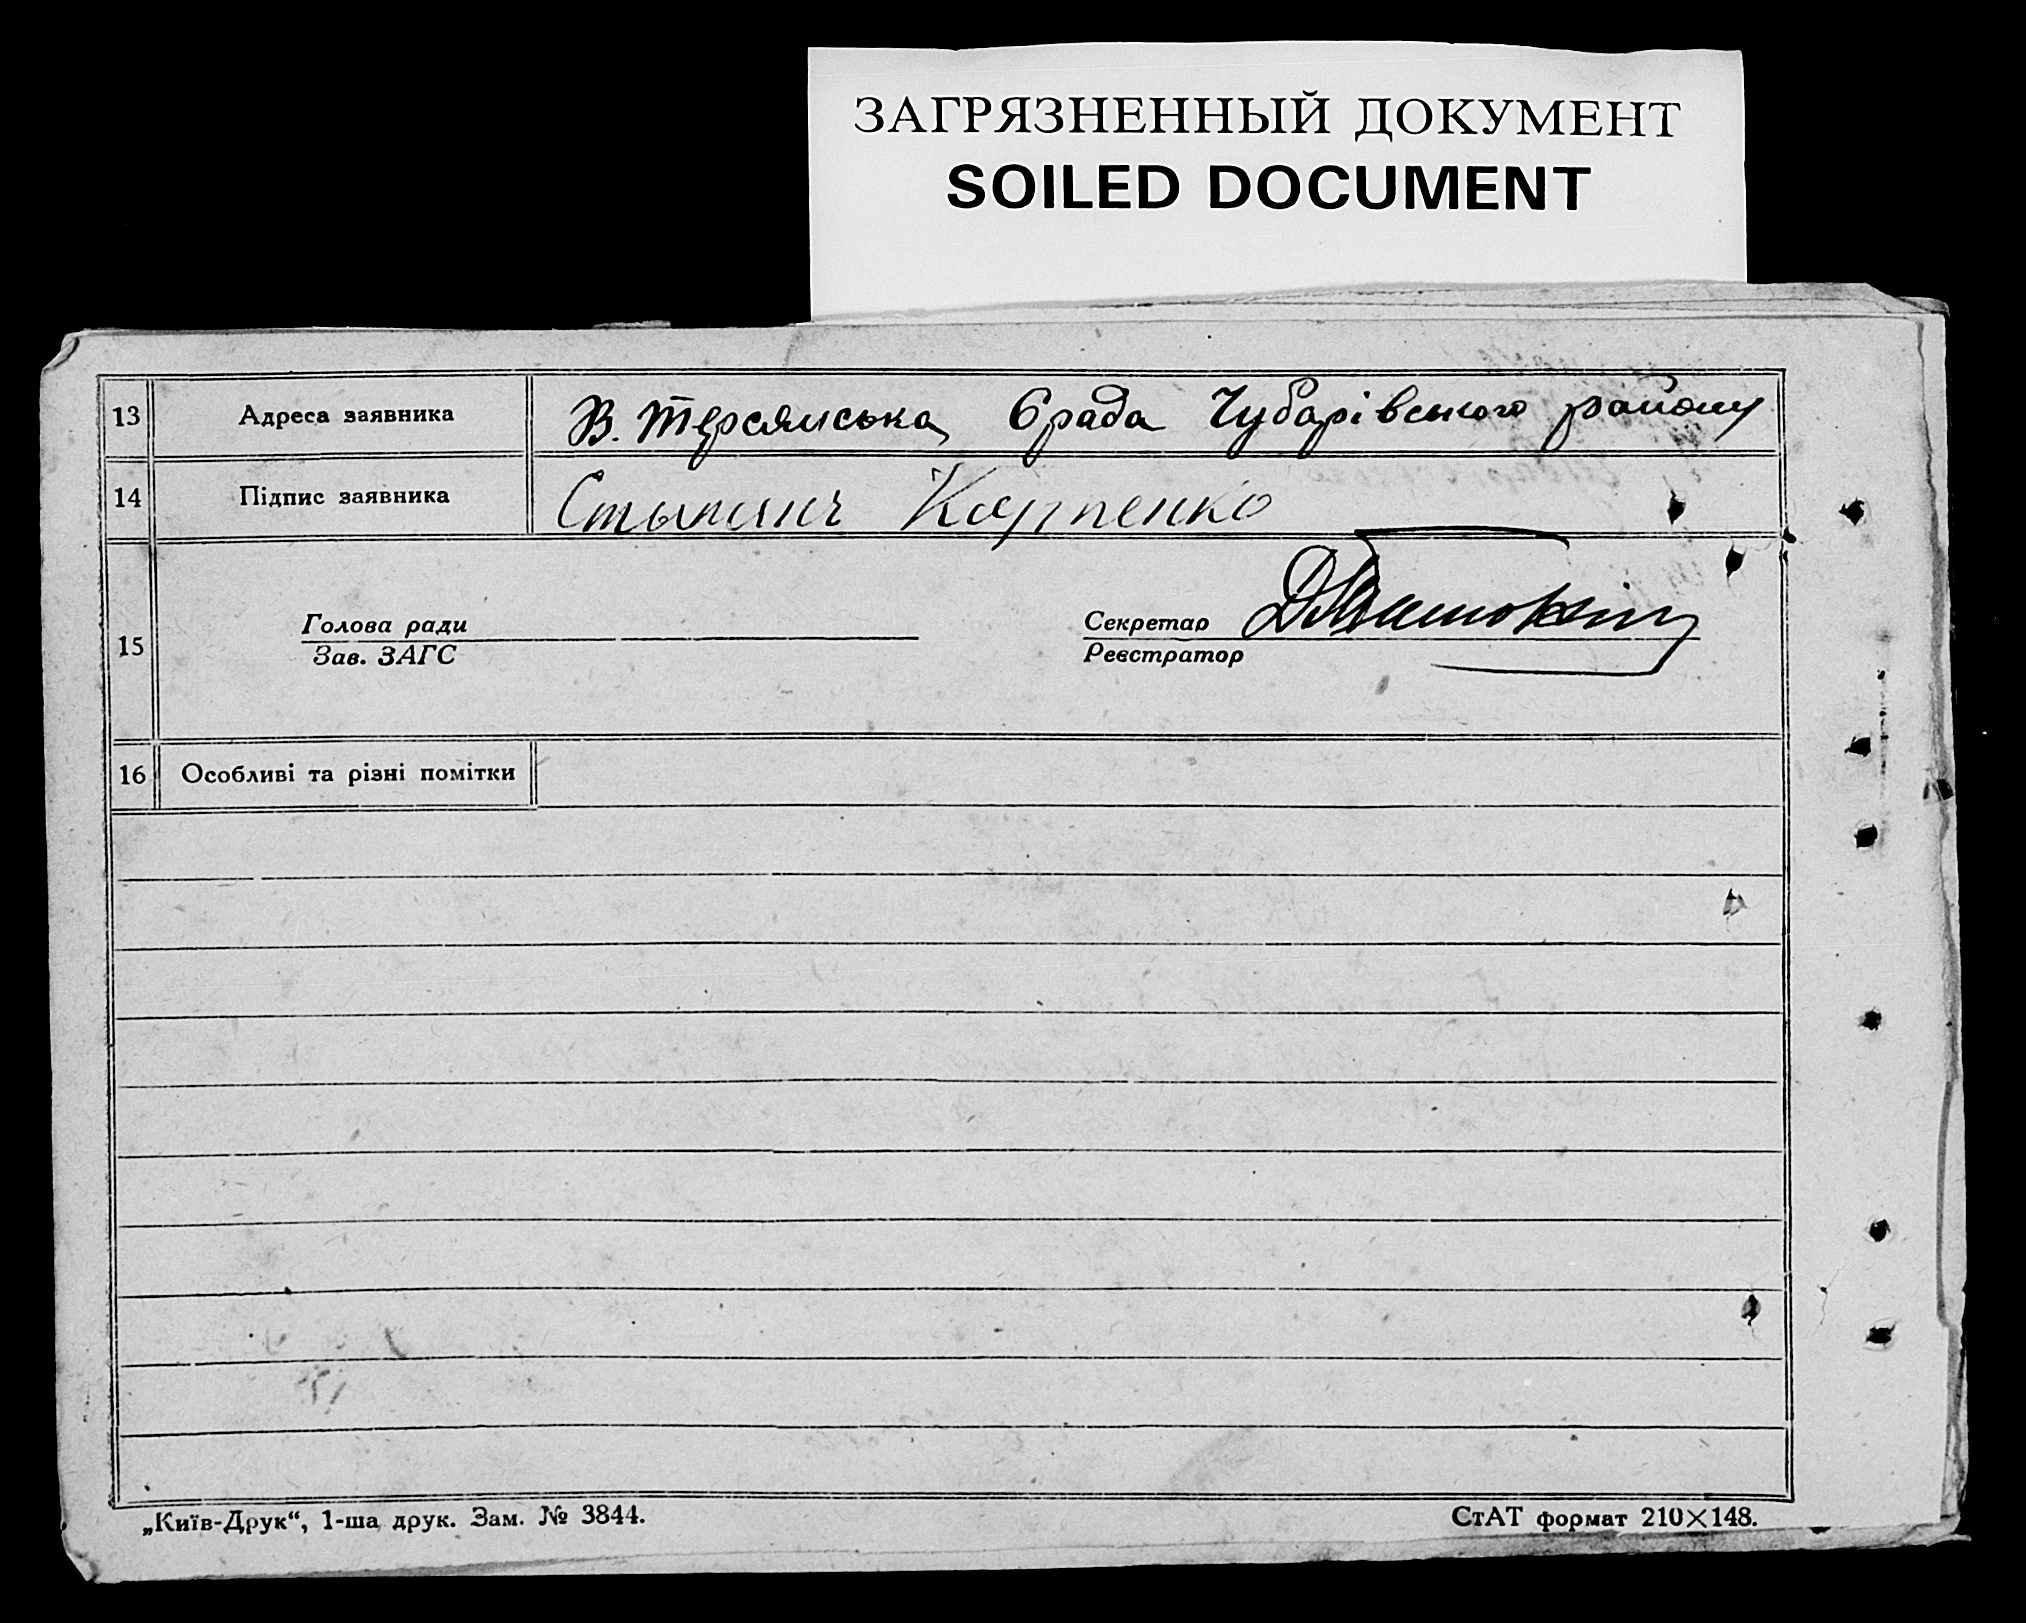 ЗАГРЯЗНЕННЫЙ ДОКУМЕНТ
SOILED DOCUMENT
13 Адреса заявника В. Терсянська с/рада Чубарівського району
14 Підпис заявника Стыпанъ Карпенко
Голова ради Секретар
15
Зав. ЗАГС Реєстратор
16 Особливі та різні помітки
„Київ-Друк“, 1-ша друк. Зам. № 3844. СтАТ формат 210×148.